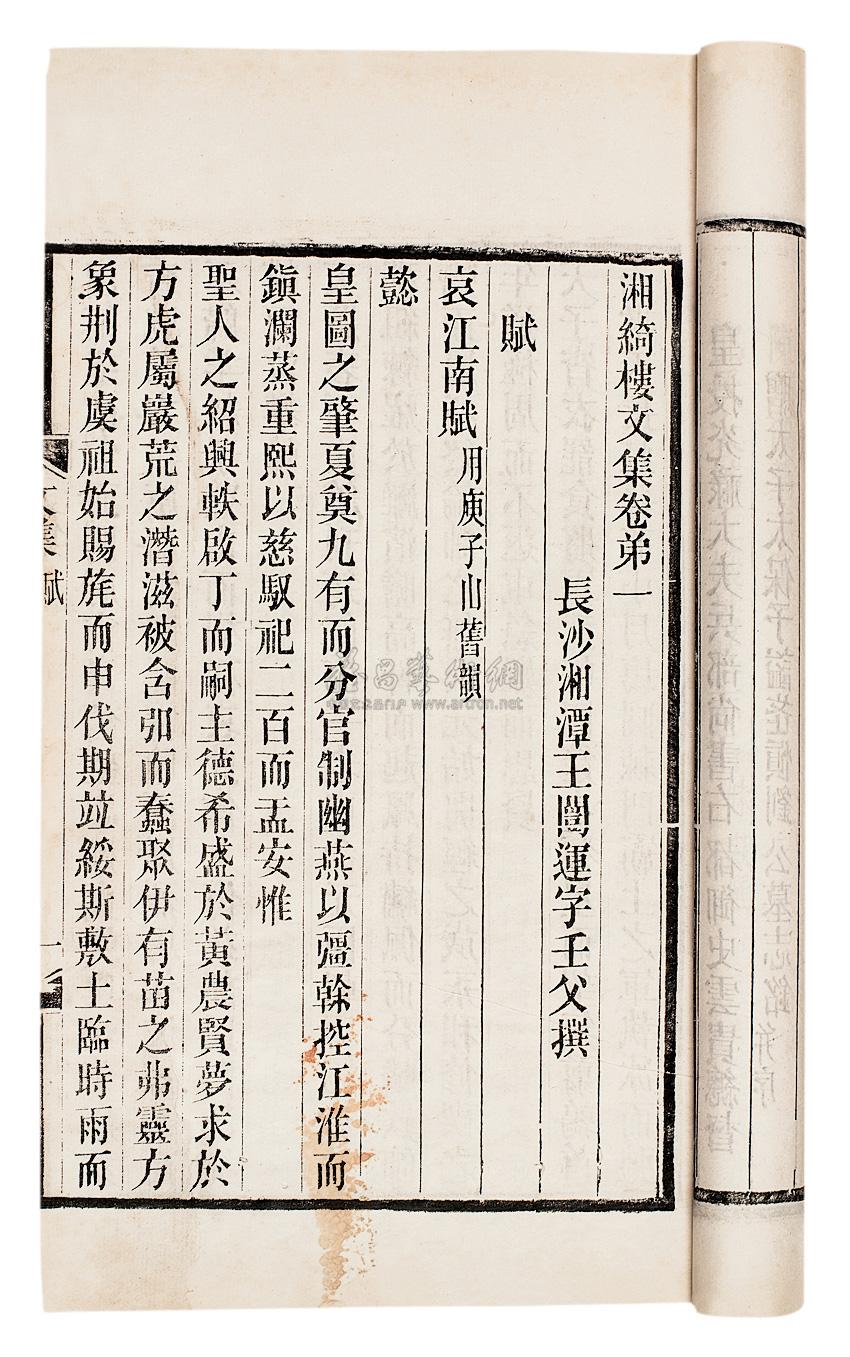 湘綺樓文集卷弟一
長沙湘潭王闓運字壬父撰
賦
哀江南賦 用庾子山舊韻
懿
皇圖之肇夏奠九有而分官制幽燕以彊榦控江淮而
鎭瀾蒸重熙以慈馭祀二百而盂安惟
聖人之紹興軼啟丁而嗣主德希盛於黃農賢夢求於
方虎屬巖荒之潛滋被含卵而蠢聚伊有苗之弗靈方
象刑於虞祖始賜旄而申伐期竝綏斯敷土臨時雨而
文集 賦
一
www.artron.net